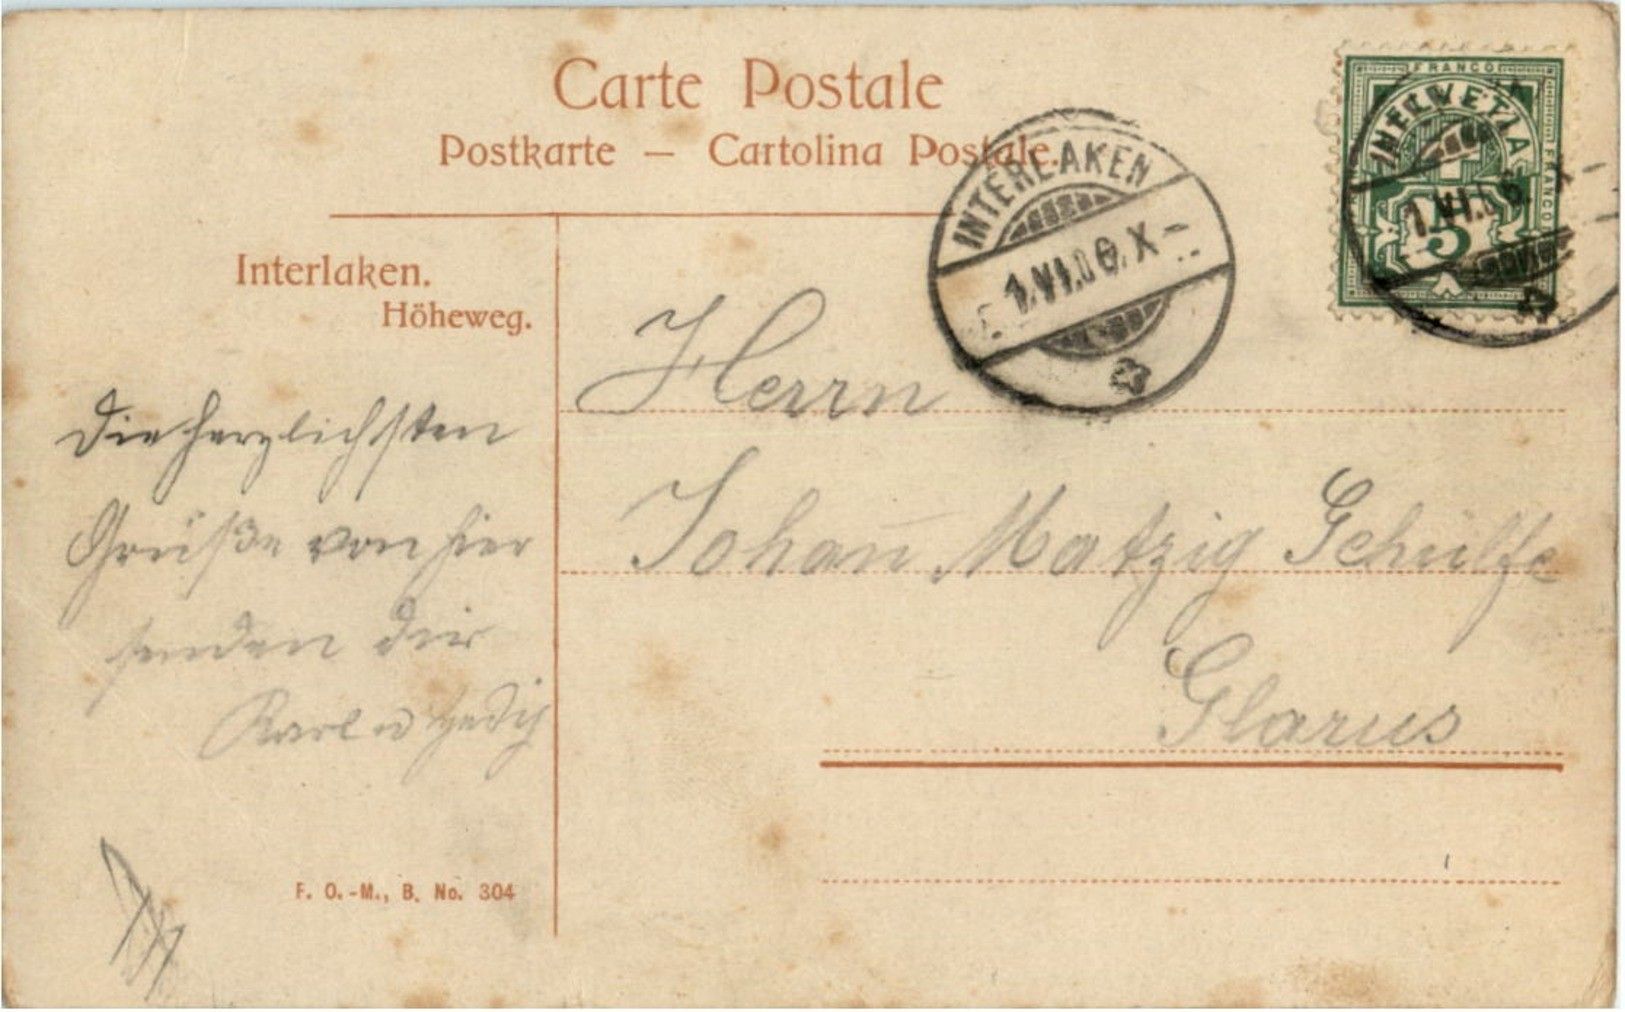 Carte Postale
Postkarte — Cartolina Postale.
FRANCO
HELVETIA
FRANCO
5
INTERLAKEN
1.VI.06. X
INTERLAKEN
1.VI.06. X
Interlaken.
Höheweg.
Herrn
Johann Matzig
Glarus
Die herzlichsten
Grüße von hier
senden dir
Karl u
F. O.-M., B. No. 304